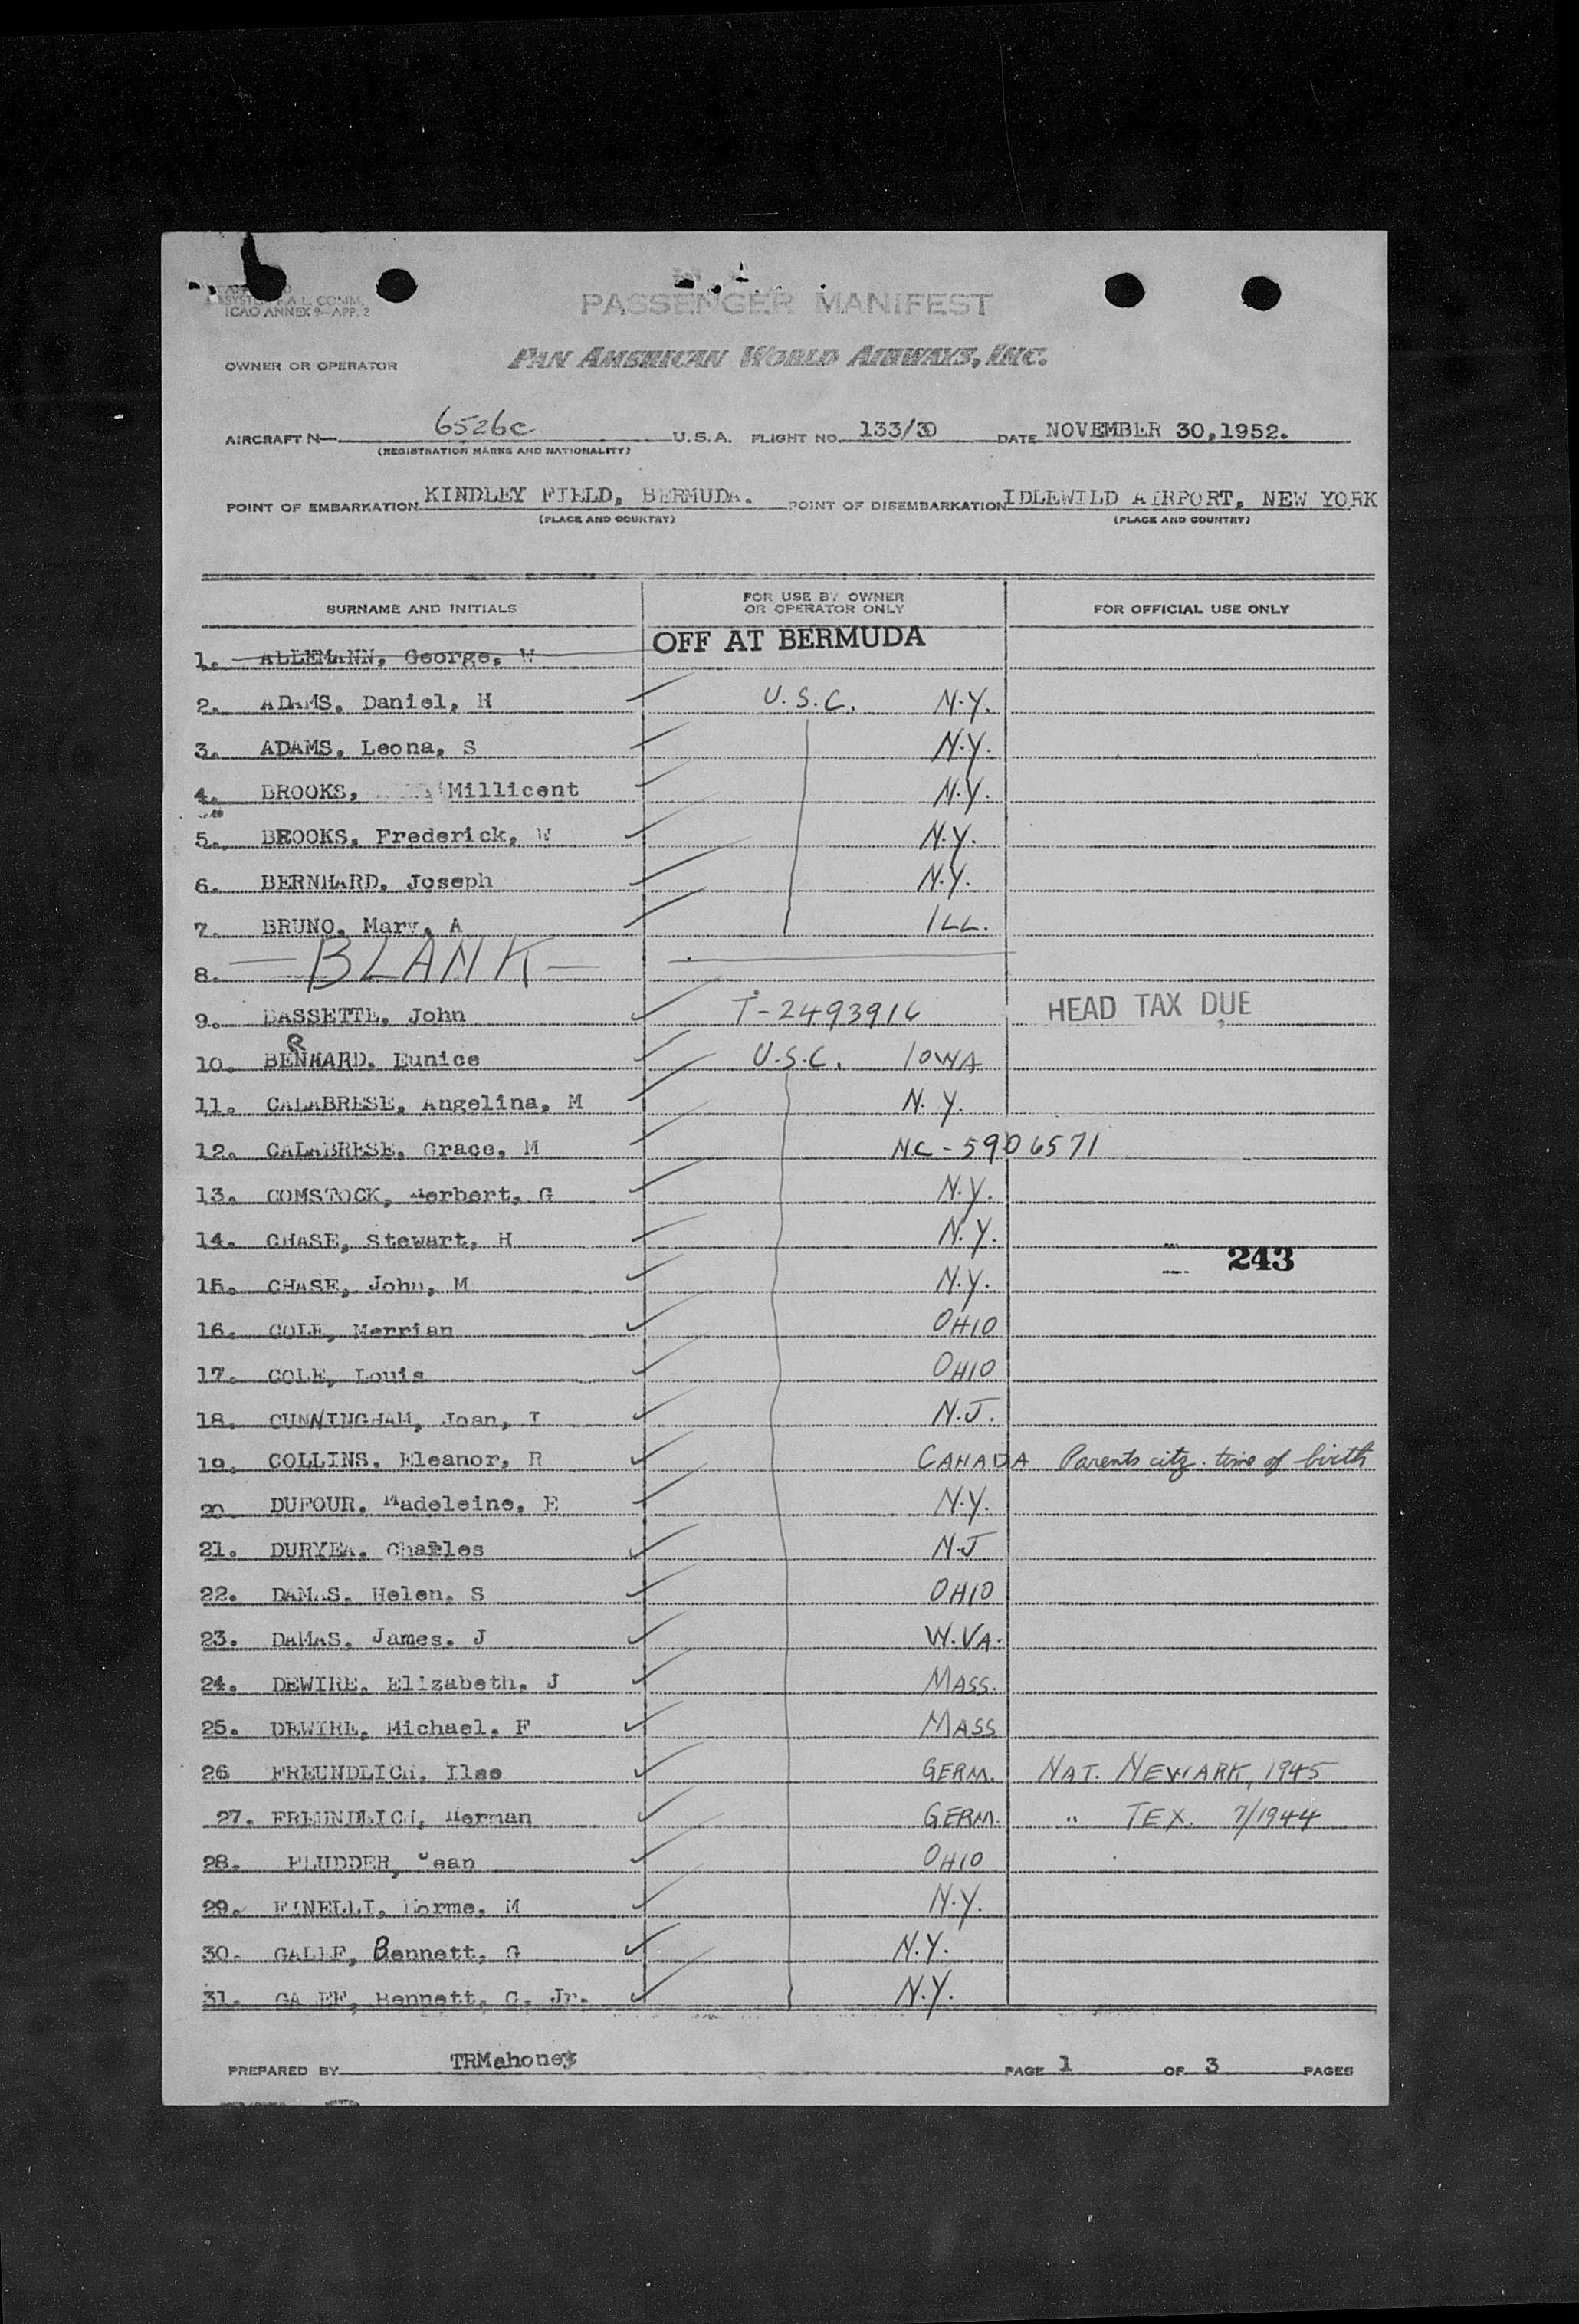 ICAO ANNEX 9-APP. 2
PASSENGER MANIFEST
OWNER OR OPERATOR PAN AMERICAN WORLD AIRWAYS, INC.
AIRCRAFT N- 6526c U.S.A. FLIGHT NO. 133/30 DATE NOVEMBER 30,1952.
(REGISTRATION MARKS AND NATIONALITY)
POINT OF EMBARKATION KINDLEY FIELD, BERMUDA. POINT OF DISEMBARKATION IDLEWILD AIRPORT, NEW YORK
(PLACE AND COUNTRY) (PLACE AND COUNTRY)
SURNAME AND INITIALS FOR USE BY OWNER OR OPERATOR ONLY FOR OFFICIAL USE ONLY
1. ALLEMANN, George, W OFF AT BERMUDA
2. ADAMS, Daniel, H U.S.C. N.Y.
3. ADAMS, Leona, S N.Y.
4. BROOKS, Millicent N.Y.
5. BROOKS, Frederick, W N.Y.
6. BERNHARD, Joseph N.Y.
7. BRUNO, Mary, A ILL.
8. — BLANK —
9. BASSETTE, John T-2493916 HEAD TAX DUE
10. BERNHARD. Eunice U.S.C. IOWA
11. CALABRESE, Angelina, M N.Y.
12. CALABRESE, Grace, M NC-5906571
13. COMSTOCK, Herbert, G N.Y.
14. CHASE, Stewart, H N.Y.
243
15. CHASE, John, M N.Y.
16. COLE, Merrian OHIO
17. COLE, Louis OHIO
18. CUNNINGHAM, Joan, I N.J.
19. COLLINS. Eleanor, R CANADA Parents citz. time of birth
20 DUFOUR. Madeleine, E N.Y.
21. DURYEA. Charles N.J
22. DAMAS. Helen. S OHIO
23. DAMAS. James. J W.VA.
24. DEWIRE, Elizabeth. J MASS.
25. DEWIRE, Michael. F MASS
26 FREUNDLICH, Ilse GERM. NAT. NEWARK, 1945
27. FREUNDLICH, Herman GERM. " TEX. 7/1944
28. FLUDDER, Jean OHIO
29. FINELLI, Norme. M N.Y.
30. GALEF, Bennett, G N.Y.
31. GALEF, Bennett, G. Jr. N.Y.
PREPARED BY TRMahoney PAGE 1 OF 3 PAGES